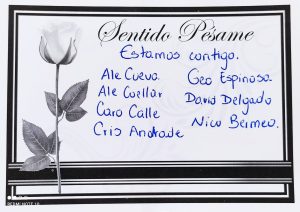 Sentido Pésame
Estamos contigo.
Ale Cueva
Geo Espinosa.
Ale Cuellar
Dario Delgado
Caro Calle
Nico Bermeo.
Cris Andrade
REDMI NOTE 10